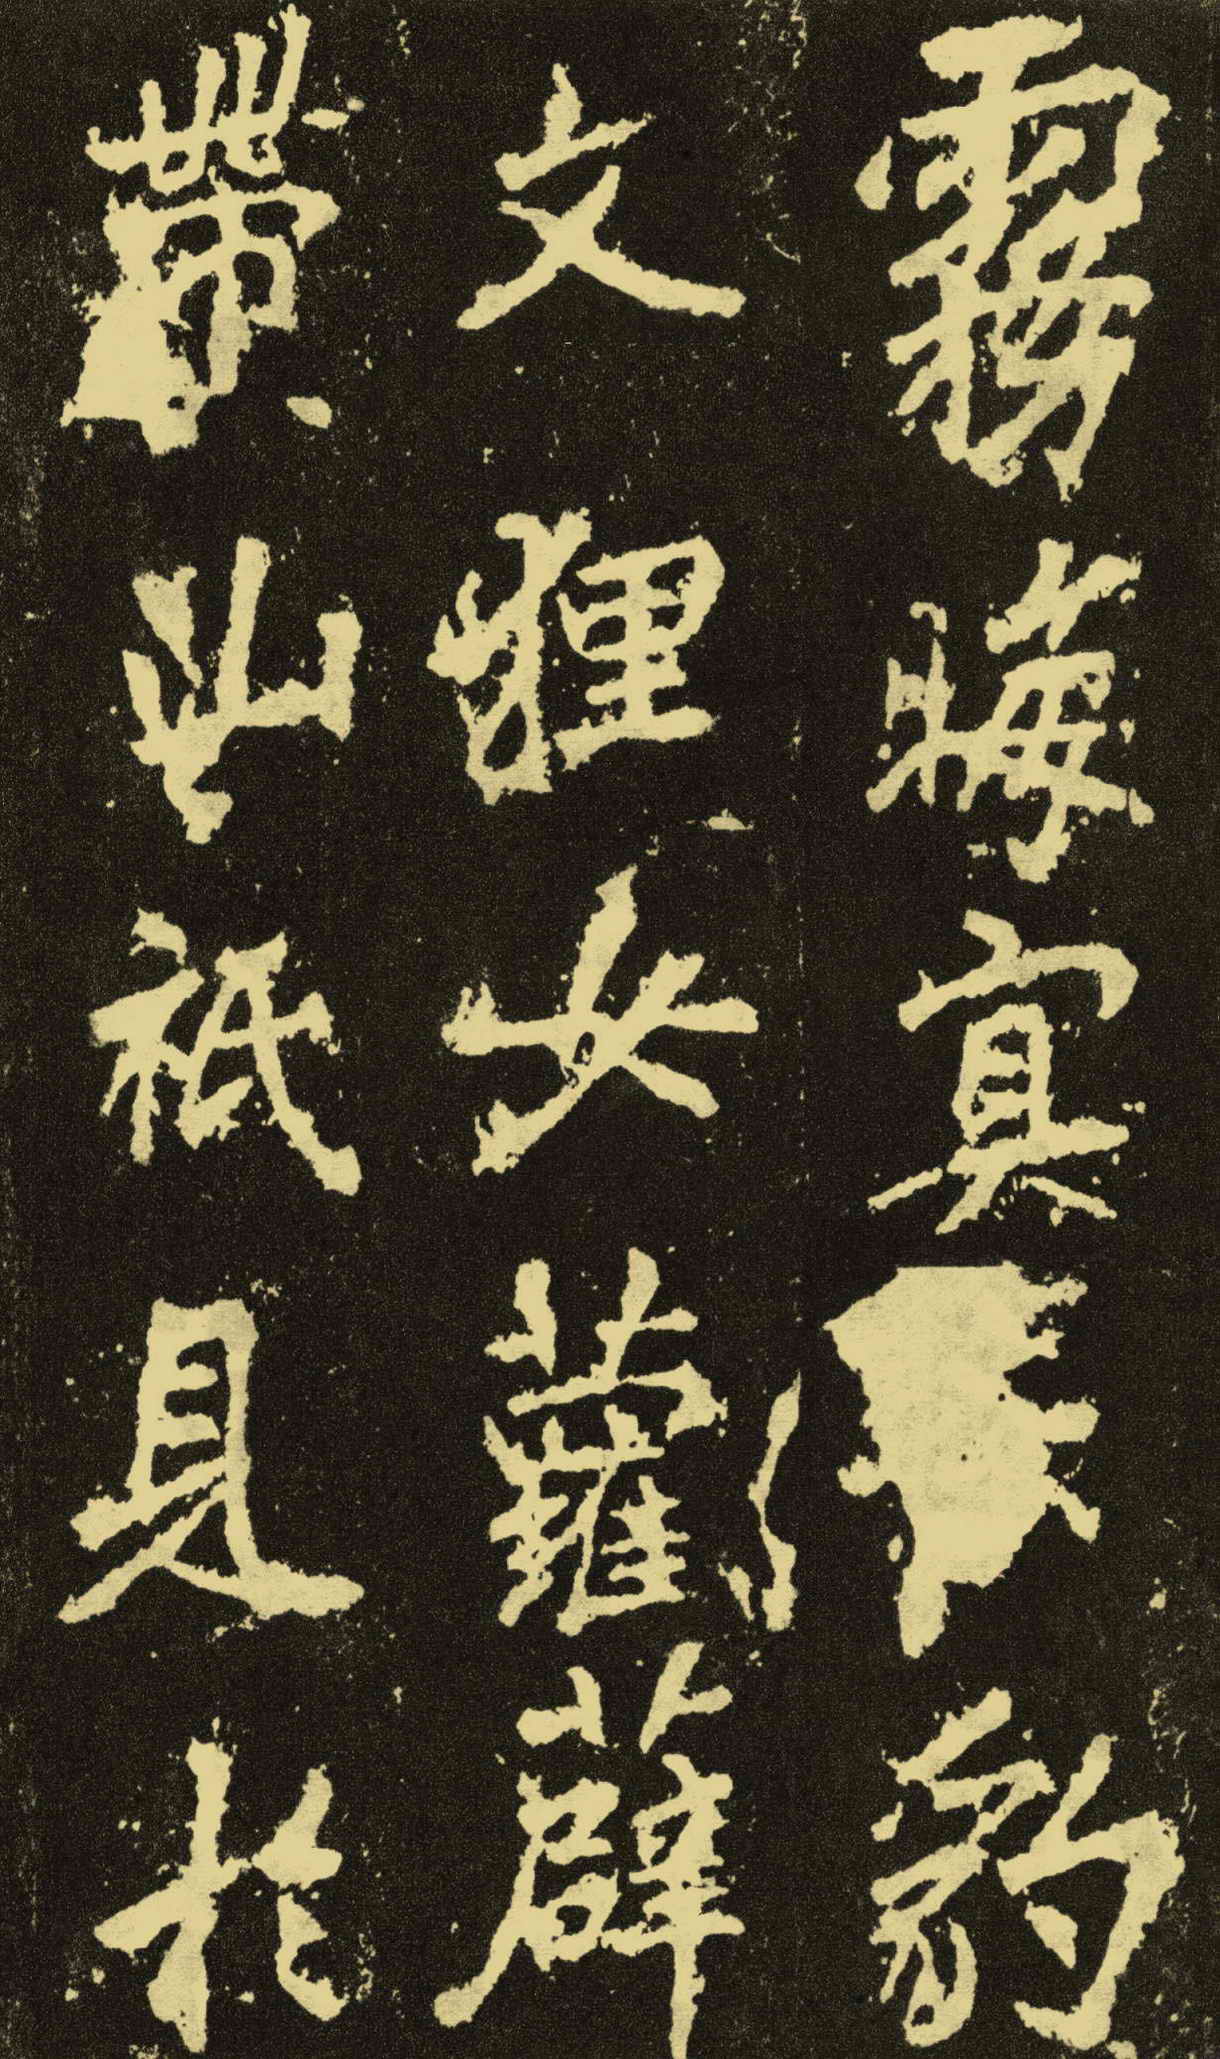 霧晦寘豹
文狸女蘿薜
帶山祇見於